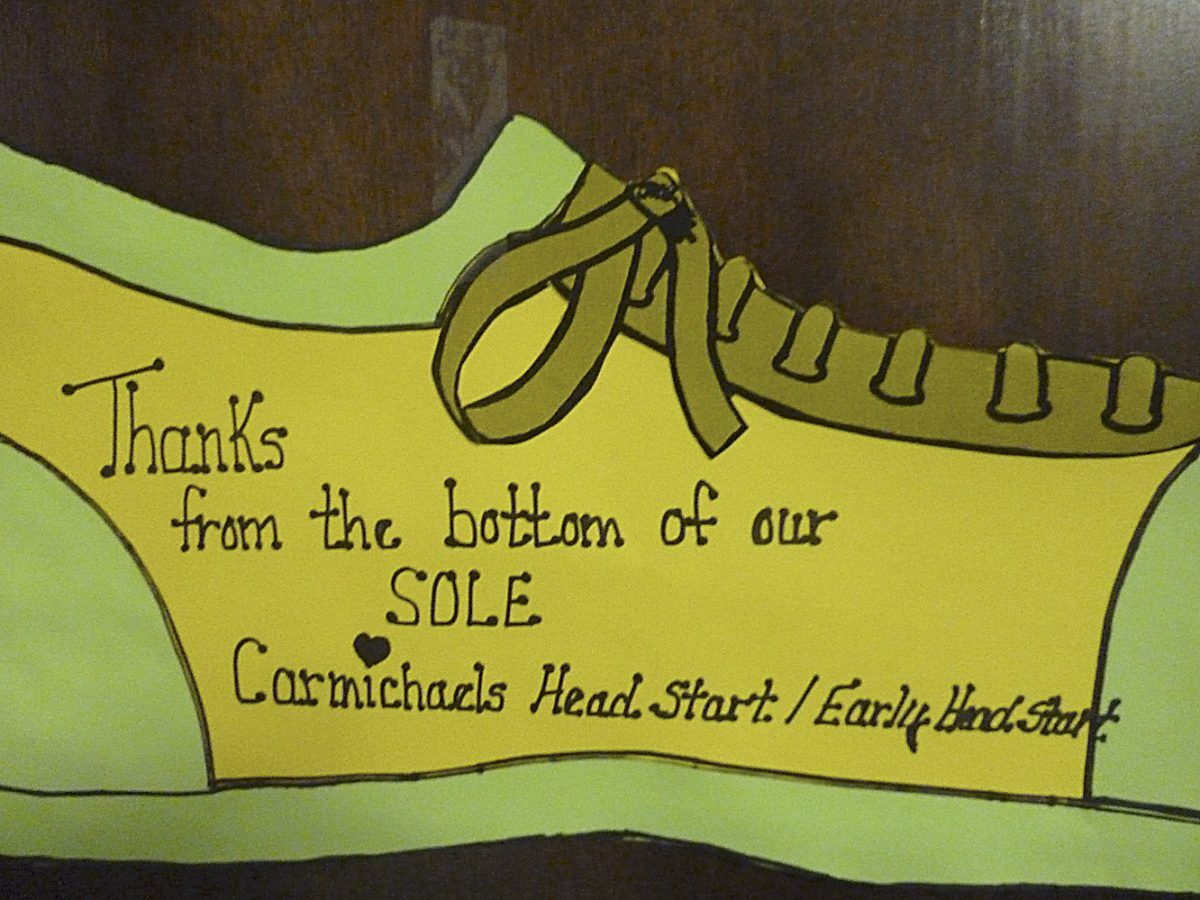 Thanks
from the bottom of our
SOLE
Carmichaels Head Start / Early Head Start